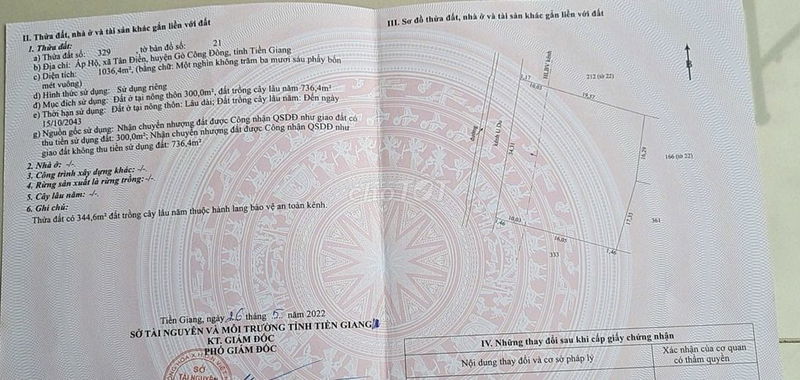 II. Thửa đất, nhà ở và tài sản khác gắn liền với đất
1. Thửa đất:
a) Thửa đất số: 329 , tờ bản đồ số: 21
b) Địa chỉ: Ấp Hộ, xã Tân Điền, huyện Gò Công Đông, tỉnh Tiền Giang
c) Diện tích: 1036,4m², (bằng chữ: Một nghìn không trăm ba mươi sáu phẩy bốn
mét vuông)
d) Hình thức sử dụng: Sử dụng riêng
đ) Mục đích sử dụng: Đất ở tại nông thôn 300,0m², đất trồng cây lâu năm 736,4m²
e) Thời hạn sử dụng: Đất ở tại nông thôn: Lâu dài; Đất trồng cây lâu năm: Đến ngày
15/10/2043
g) Nguồn gốc sử dụng: Nhận chuyển nhượng đất được Công nhận QSDĐ như giao đất có
thu tiền sử dụng đất: 300,0m²; Nhận chuyển nhượng đất được Công nhận QSDĐ như
giao đất không thu tiền sử dụng đất: 736,4m²
2. Nhà ở: -/-
3. Công trình xây dựng khác: -/-
4. Rừng sản xuất là rừng trồng: -/-
5. Cây lâu năm: -/-
6. Ghi chú:
Thửa đất có 344,6m² đất trồng cây lâu năm thuộc hành lang bảo vệ an toàn kênh.
Tiền Giang, ngày 26 tháng 5 năm 2022
SỞ TÀI NGUYÊN VÀ MÔI TRƯỜNG TỈNH TIỀN GIANG
KT. GIÁM ĐỐC
PHÓ GIÁM ĐỐC
SỞ
TÀI NGUYÊN
III. Sơ đồ thửa đất, nhà ở và tài sản khác gắn liền với đất
B
HLBV kênh
212 (tờ 22)
10,03
18,57
đường
kênh U Du
34,31
16,29
166 (tờ 22)
17,33
361
10,03
16,05
1,46
333
IV. Những thay đổi sau khi cấp giấy chứng nhận
Nội dung thay đổi và cơ sở pháp lý
Xác nhận của cơ quan
có thẩm quyền